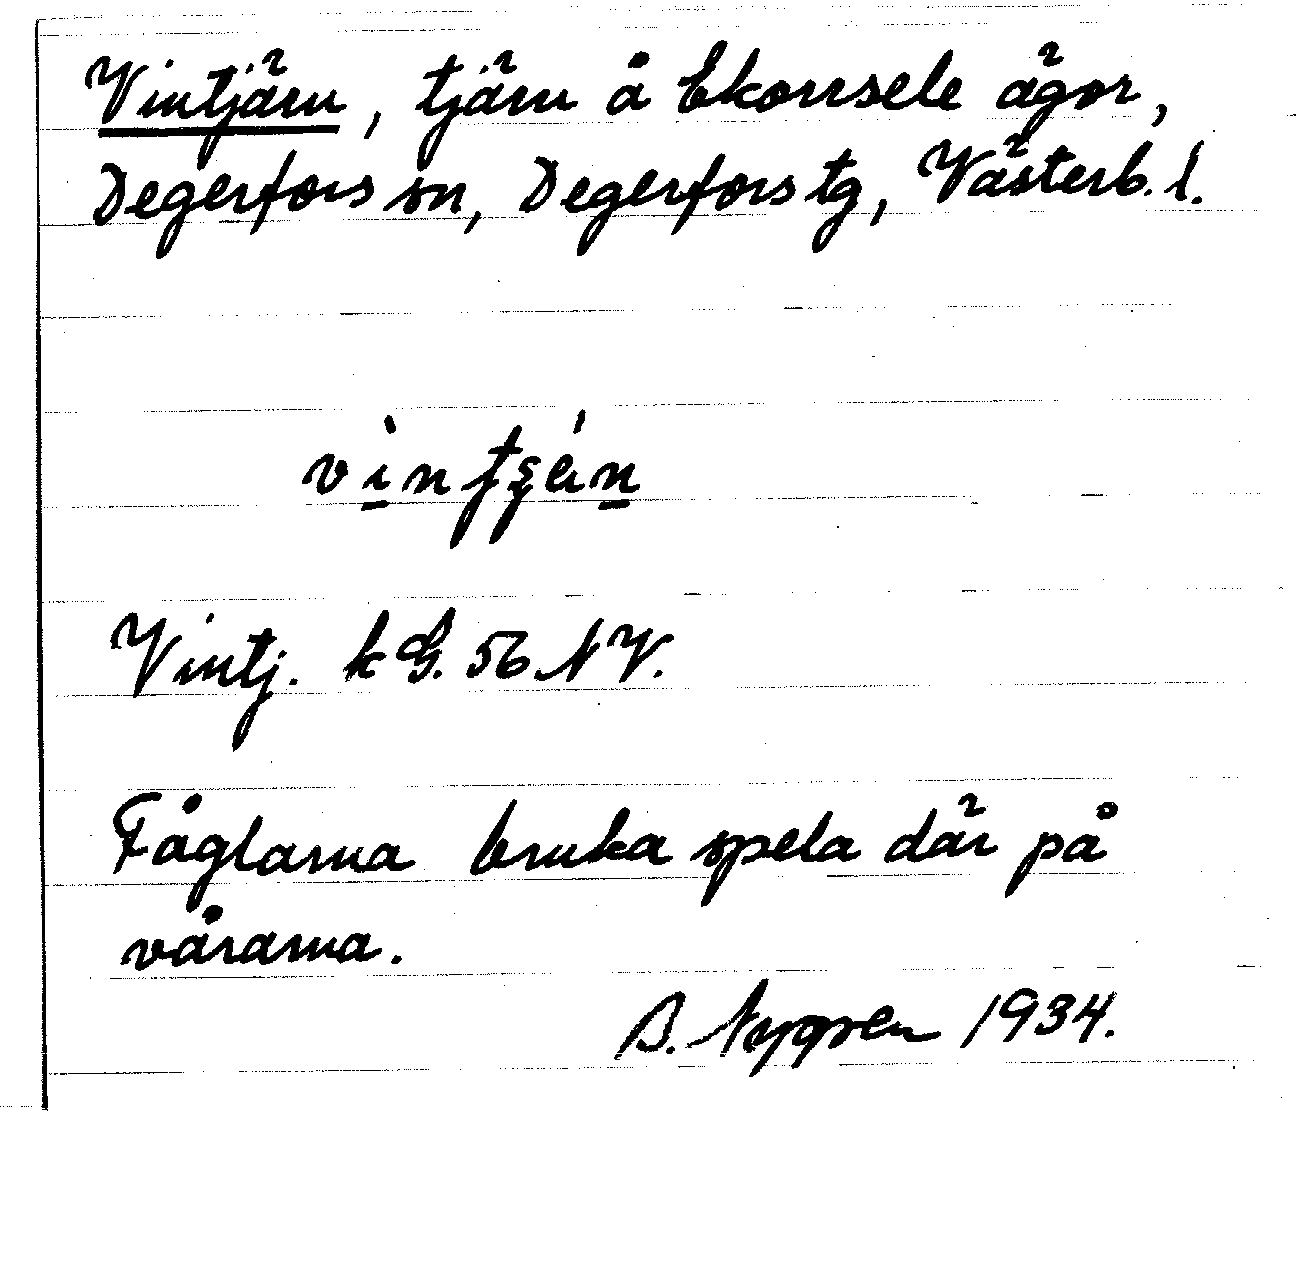 Vintjärn, tjärn å Ekorrsele ägor,
Degerfors sn, Degerfors tg, Västerb. l.
Vintj. k G. 56 NV.
Fåglarna bruka spela där på
vårarna.
B. Nygren 1934.